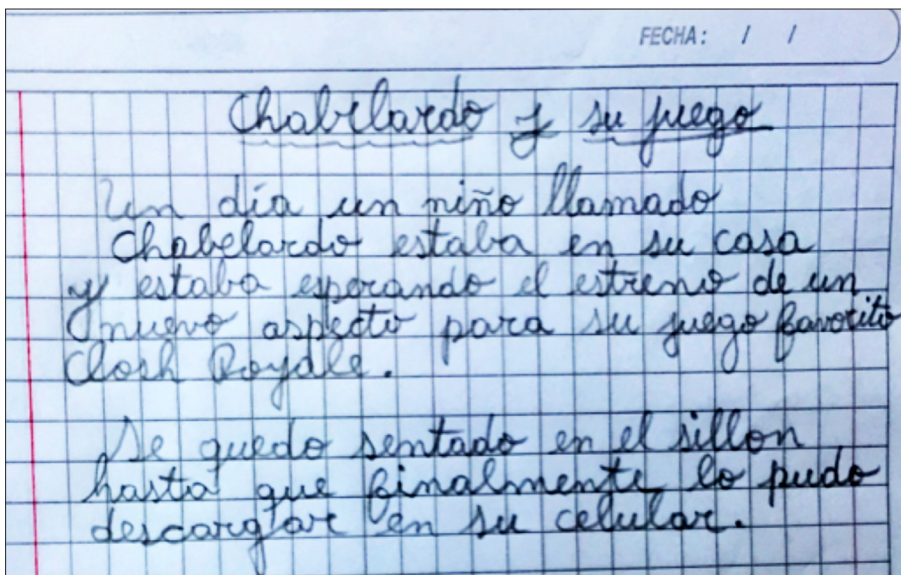 FECHA: / /
Chabelardo y su juego
Un día un niño llamado
Chabelardo estaba en su casa
y estaba esperando el estreno de un
nuevo aspecto para su juego favorito
Clash Royale.
Se quedo sentado en el sillon
hasta que finalmente lo pudo
descargar en su celular.